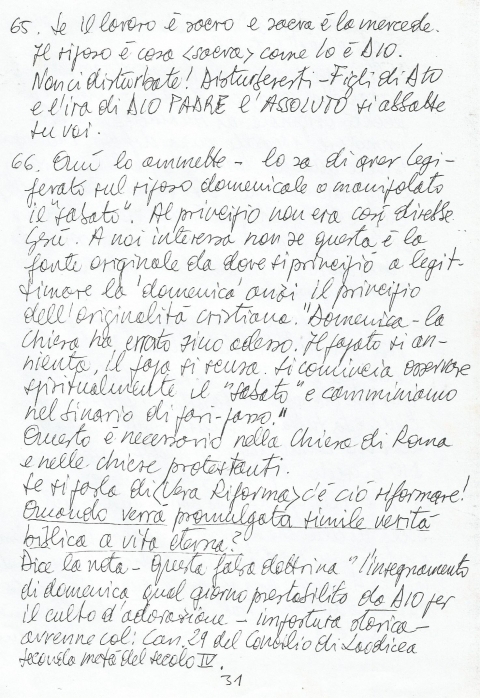 65. Se il lavoro è sacro e sacra è la mercede.
Il riposo è cosa <sacra> come lo è DIO.
Non ci disturbate! Disturberesti - Figli di DIO
e l'ira di DIO PADRE l'ASSOLUTO si abbatte
su voi.
66. Chi lo ammette - lo sa di aver legi-
ferato sul riposo domenicale o manipolato
il "sabato". Al principio non era così direbbe
Gesù. A noi interessa non se questa è la
fonte originale da dove si principiò a legit-
timare la 'domenica' anzi il principio
dell'originalità cristiana. "Domenica - la
Chiesa ha errato sino adesso. Il papato si an-
nienta, il papa si scusa. Si comincia osservare
spiritualmente il "sabato" e camminiamo
nel binario di pari-passo."
Questo è necessario nella Chiesa di Roma
e nelle chiese protestanti.
Se si parla di <Vera Riforma> c'è ciò riformare!
Quando verrà promulgata simile verità
biblica a vita eterna?
Dice la nota - Questa falsa dottrina "l'insegnamento
di domenica qual giorno prestabilito da DIO per
il culto d'adorazione - impostura storica -
avvenne col: Can. 29 del Concilio di Laodicea
seconda metà del secolo IV.
31